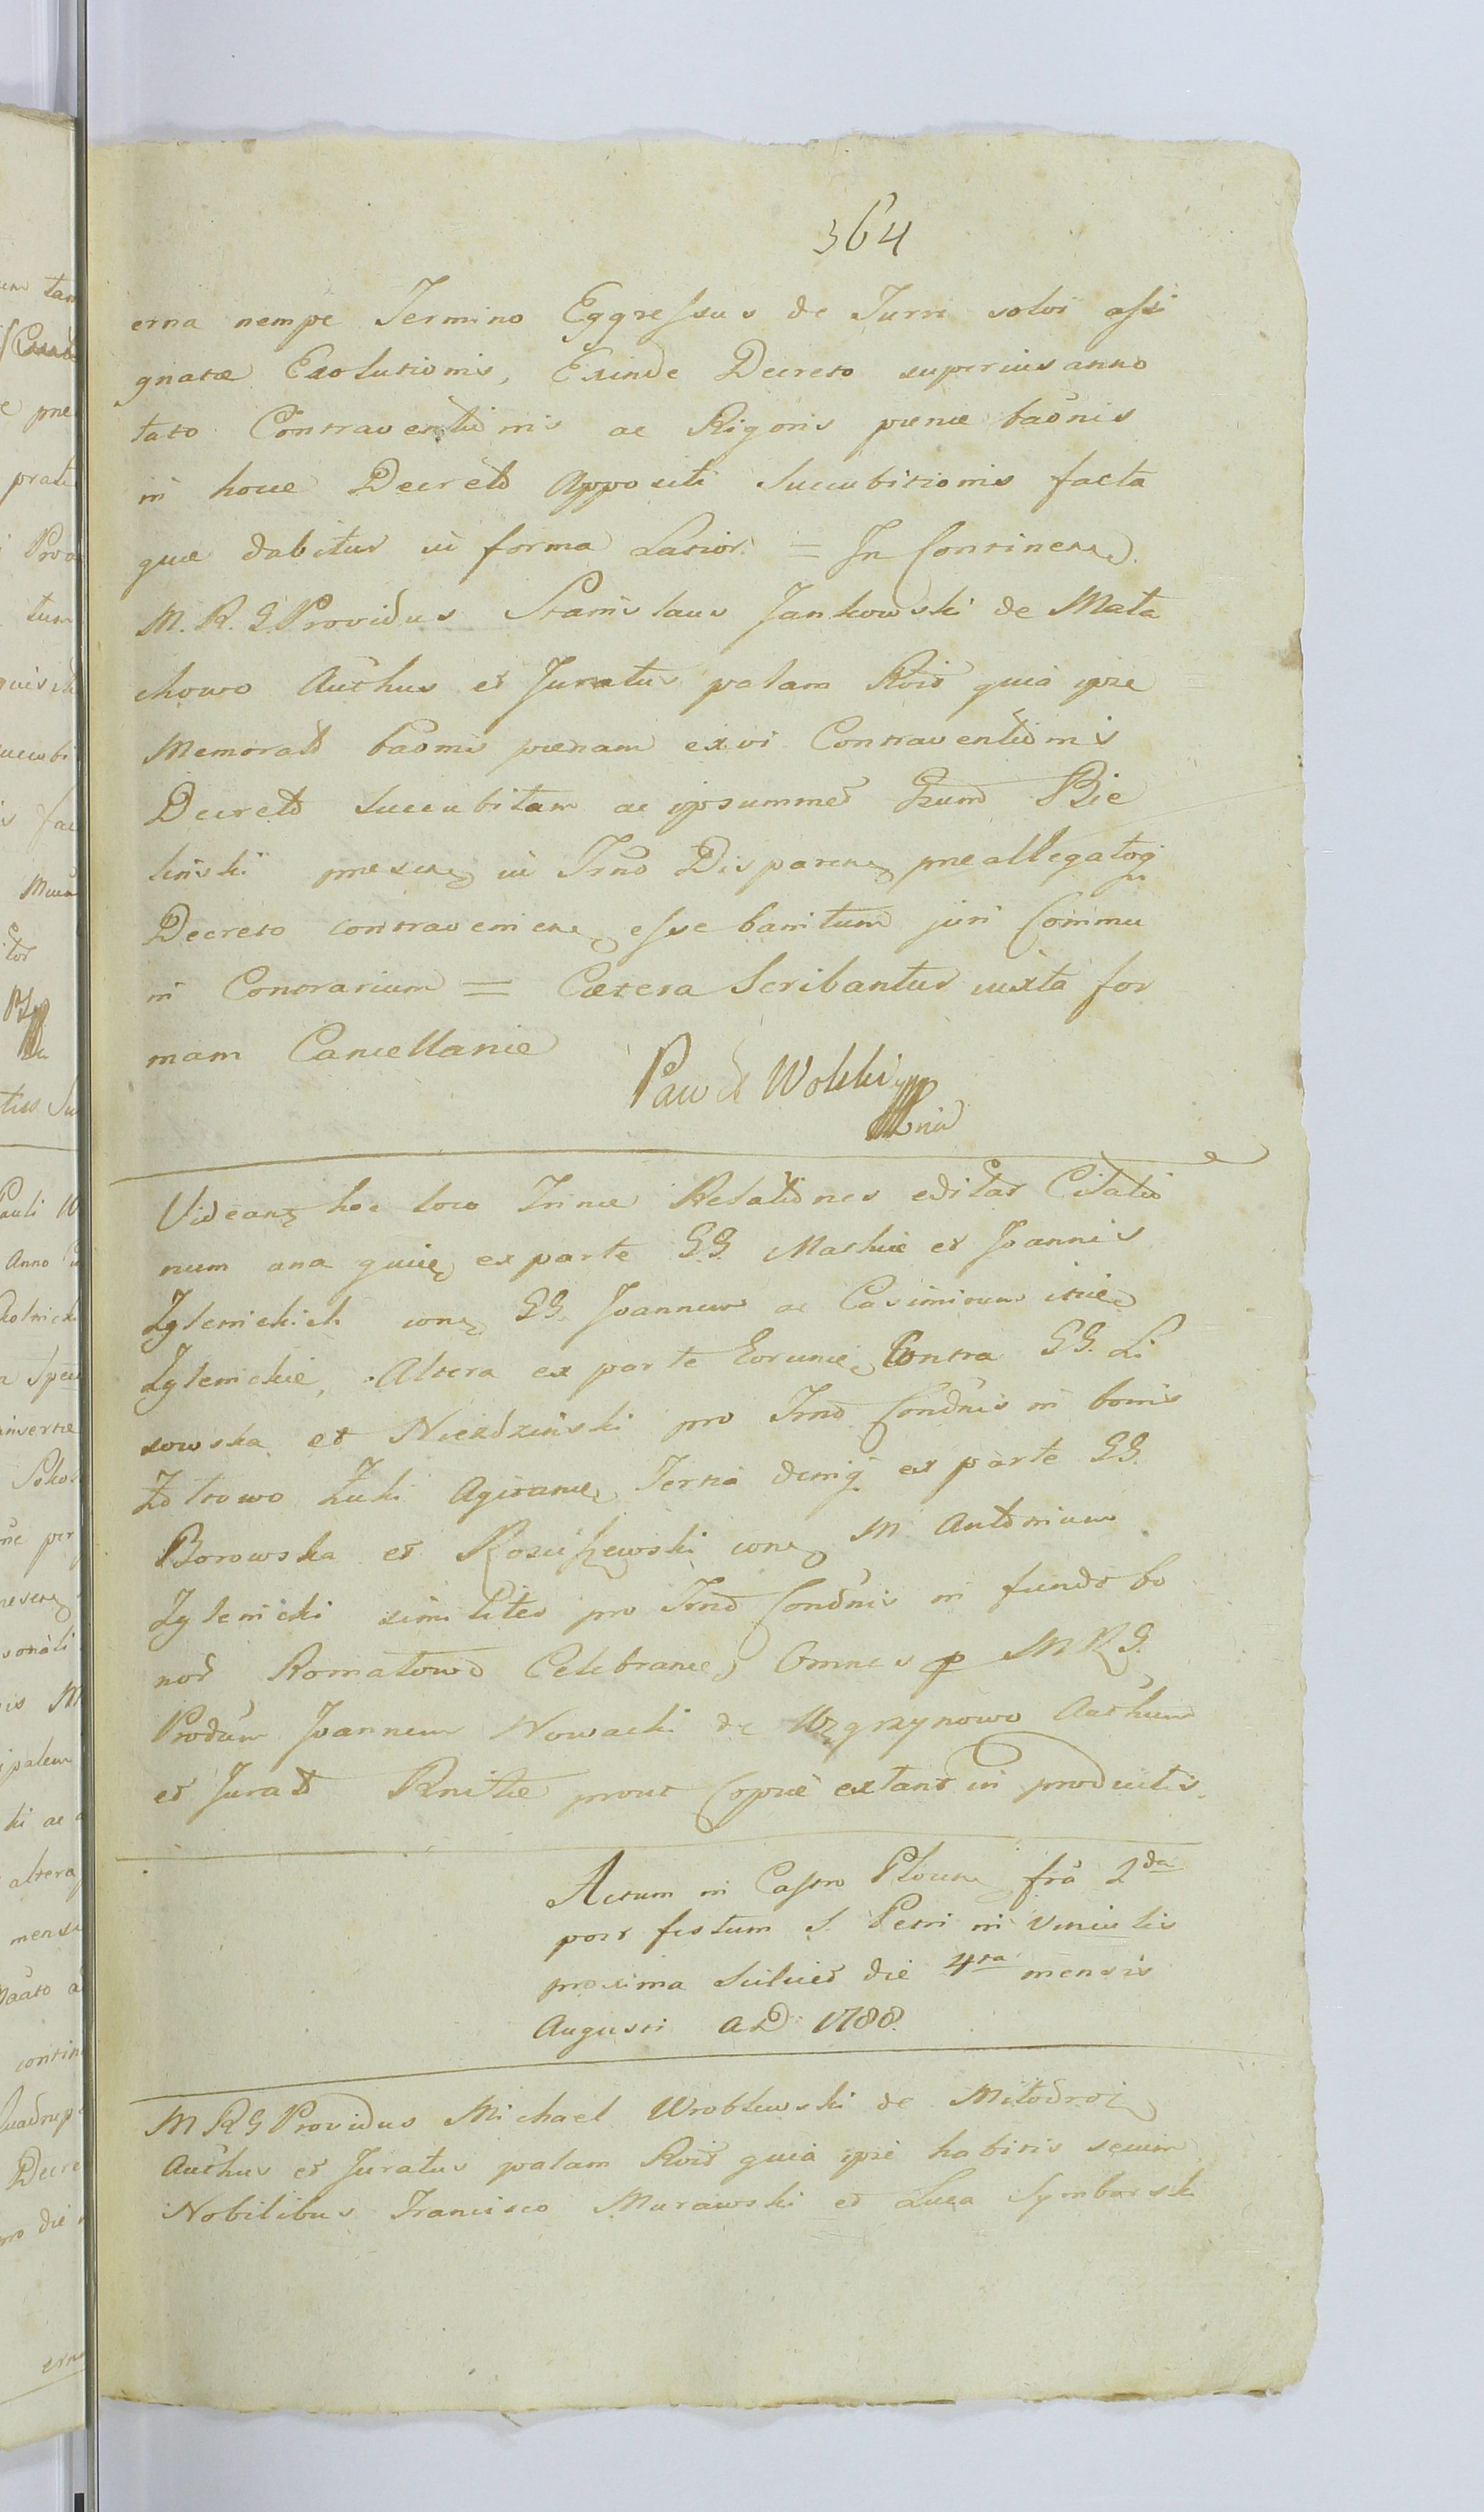 364
erna nempe Termino Eggressus de Turri solvi assi
gnatæ Exolutionis, Exinde Decreto superius anno
tato Contraventionis ac Rigoris pœnæ baonis
in hocce Decreto Appositi Succubitionis facta
quæ dabitur in forma Latior: = In Continen
M. R. G. Providus Stanislaus Jankowski de Mata
chowo Authus et Juratus palam Rvit quia ipse
Memorat baonis pœnam ex vi Contraventionis
Decreto Succubitam ac ipsummet Gsum Bie
liński presen in Trno Disparen preallegatoq
Decreto contravenien esse banitum juri Commu
ni Contrarium = Cætera Scribantur iuxta for
mam Cancellariæ
Paweł Wolski
Videant hoc loco Trinæ Relationes editar Citatio
num una quie ex parte GG. Mathiæ et Joannis
Zglenickich con GG. Joannem ac Casimirum
Zglenickie, Altera ex parte Eorunde Contra GG. Li
sowska et Niezdziński pro Trno Condnis in bonis
Złotowo Żuki Agitan Tertia deniq ex parte GG.
Borowska et Rosciszewski con M Antonium
Zglenicki similiter pro Trno Condnis in fundo bo
nor Romatowo Celebran Omnes p MRG.
Produm Joannem Nowacki de Wzgrzynowo Authum
et Jurat Rnitæ prout Copiæ extant in productis.
Actum in Castro Plocen fria 2da
post festum S. Petri in Vinculis
proxima Scilicet die 4ta mensis
Augusti AD 1788.
MRG Providus Michael Wroblewski de Miłodroż
Authus et Juratus palam Rvit quia ipse habitis secum
Nobilibus Francisco Murawski et Luca Symborski